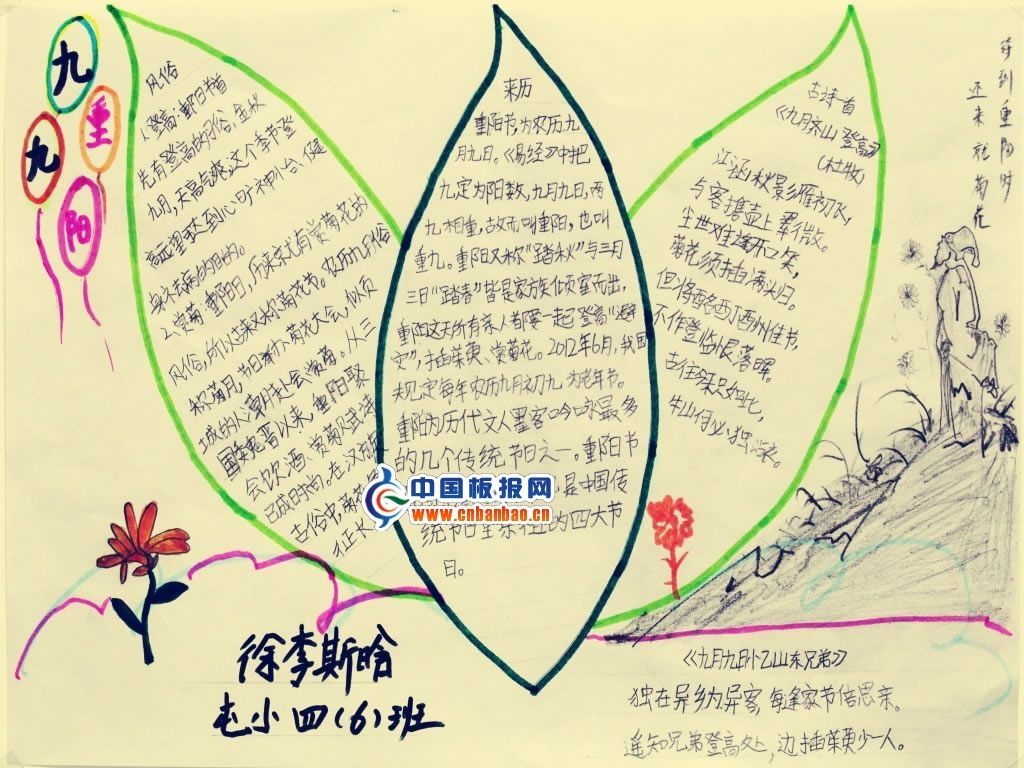 九
九
重
阳
风俗
1.登高:重阳节首
先有登高的风俗,金秋
九月,天高气爽,这个季节登
高远望可达到心旷神怡、健
身祛病的目的。
2.赏菊 重阳日,历来就有赏菊花的
风俗,所以过来又称菊花节。农历九月俗
称菊月,节日举办菊花大会,倾
城的人潮赴会赏菊。从三
国魏晋以来,重阳聚
会饮酒、赏菊赋诗
已成时尚。在汉族
古俗中,菊花
征长
来历
重阳节,为农历九
月九日。《易经》中把
九定为阳数,九月九日,两
九相重,故而叫重阳,也叫
重九。重阳又称“踏秋”与三月
三日“踏春”皆是家族倾室而出,
重阳这天所有亲人都要一起登高“避
灾”,插茱萸、赏菊花。2012年6月,我国
规定每年农历九月初九为老年节。
重阳为历代文人墨客吟咏最多
的几个传统节日之一。重阳节
是中国传
统节日里祭祖的四大节
日。
古诗一首
《九月齐山登高》
(杜牧)
江涵秋影雁初飞,
与客携壶上翠微。
尘世难逢开口笑,
菊花须插满头归。
但将酩酊酬佳节,
不作登临恨落晖。
古往今来只如此,
牛山何必独沾衣。
待到重阳时
还来就菊花
中国板报网
www.cnbanbao.cn
徐李斯晗
屯小四(6)班
《九月九日忆山东兄弟》
独在异乡为异客,每逢家节倍思亲。
遥知兄弟登高处,边插茱萸少一人。